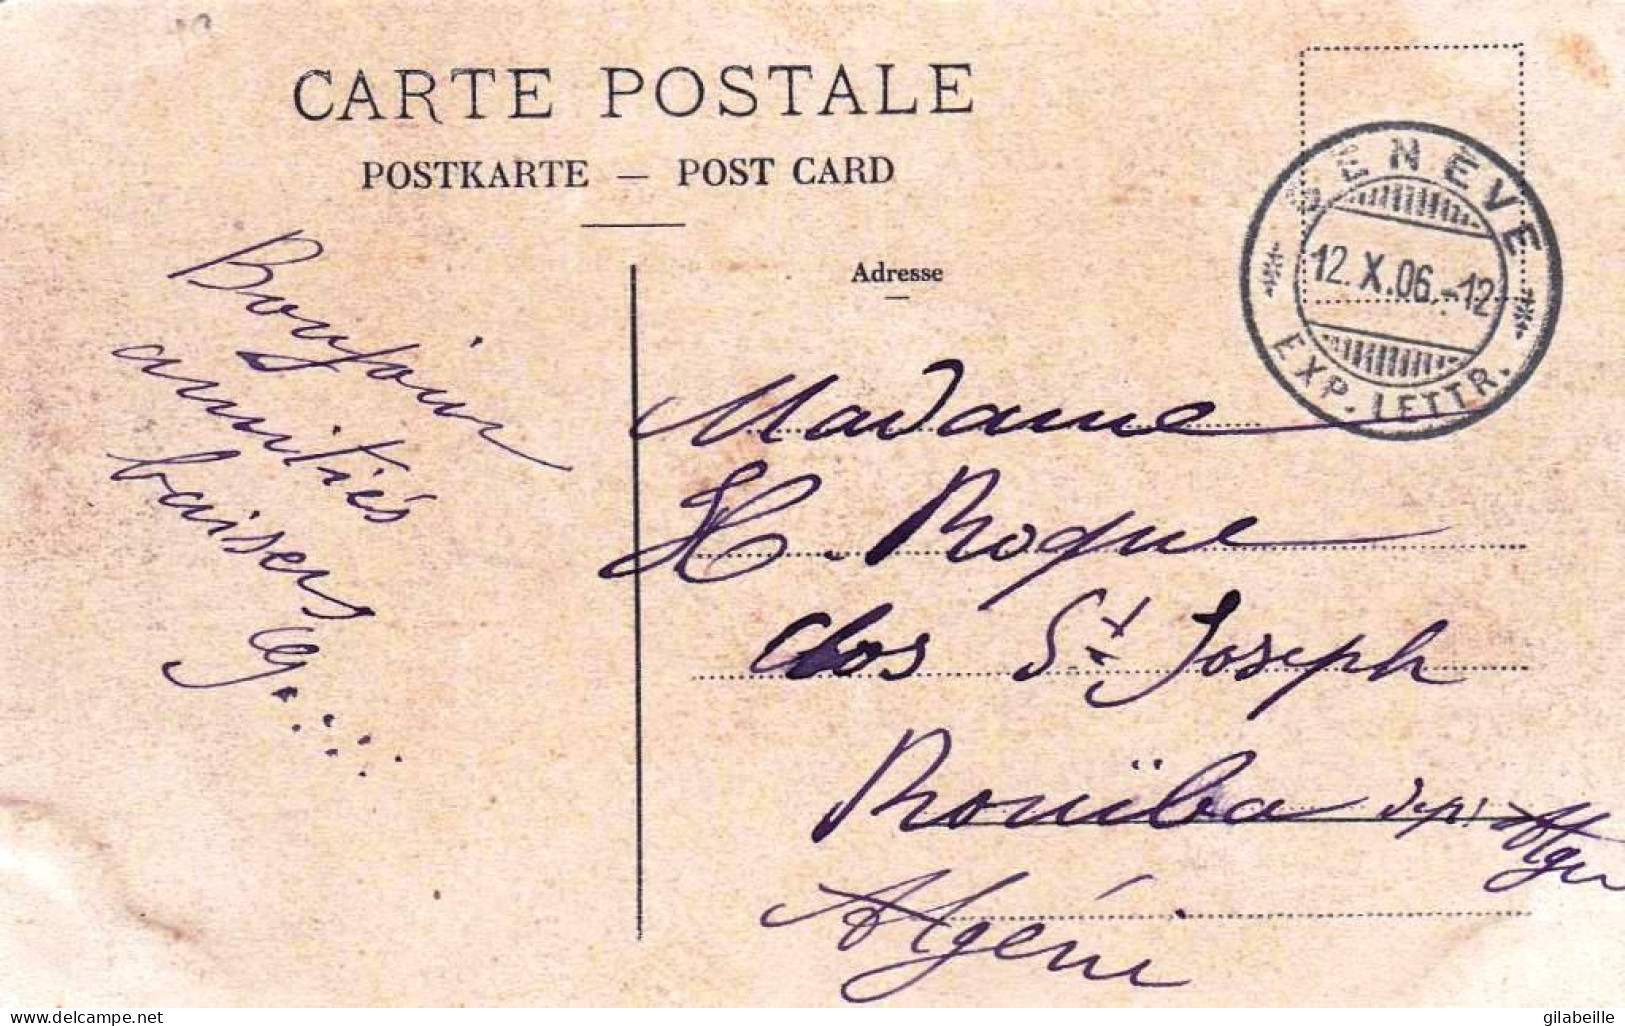 CARTE POSTALE
POSTKARTE — POST CARD
Adresse
GENÈVE
12.X.06.-12
EXP. LETTR.
Bonjour
amitiés
baisers
G.
Madame
H. Roque
clos St Joseph
Rouïba dept Alger
Algérie
www.delcampe.net
gilabeille